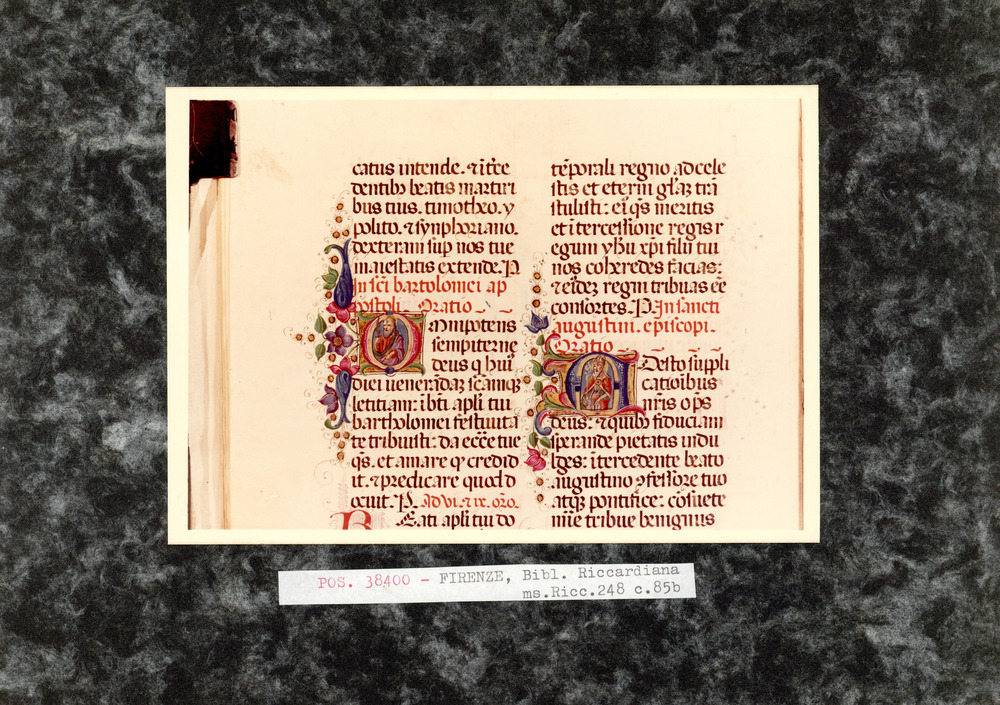 catus intende. ⁊ ĩtc̃e
dentibꝰ beatis martiri
bus tuis. timotheo. y
polito. ⁊ symphoriano.
dexteram sup nos tue
maiestatis extende. P.
In sc̃i bartolomei ap
postoli. Oratio
Omnipotens
sempiterne
deus q huiꝰ
diei uenerãdaʒ sc̃amqʒ
letitiam: ĩ bt̃i apl̃i tui
bartholomei festiuita
te tribuisti: da ecc̃e tue
q̃s. et amare qʾ credid
it. ⁊ predicare quod d
ocuit. P. Ad VI. ⁊ ix. or̃o.
Beati apl̃i tui do
tẽporali regno ad cele
stis et eterni gl̃aʒ trã
stulisti: ei q̃s meritis
et ĩtercessione regis r
egum yħu xp̃i filii tui
nos coheredes facias:
⁊ eiʼdeʒ regni tribuas ee
consortes. P. In sancti
augustini. episcopi.
Oratio
Adesto suppli
cationibus
nr̃is op̃s
deus: ⁊ quibꝰ fiduciam
sperande pietatis indu
lges: ĩtercedente beato
augustino ꝯfessore tuo
atqʒ pontifice: cõsuete
mie tribue benignus
POS. 38400 - FIRENZE, Bibl. Riccardiana
ms.Ricc.248 c.85b